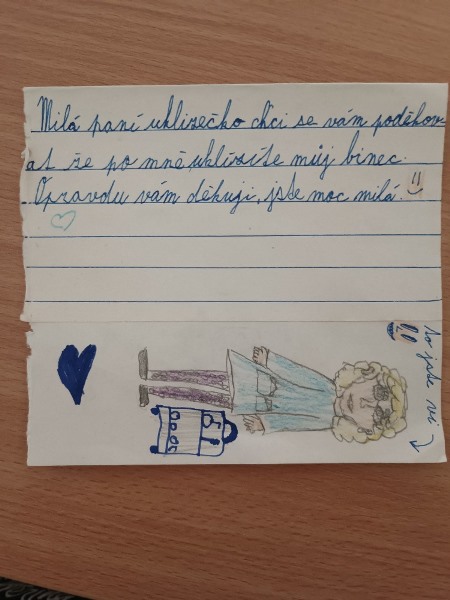 Milá paní uklizečko chci se vám poděkov
at že po mně uklízíte můj binec.
Opravdu vám děkuji, jste moc milá.
to jste vi